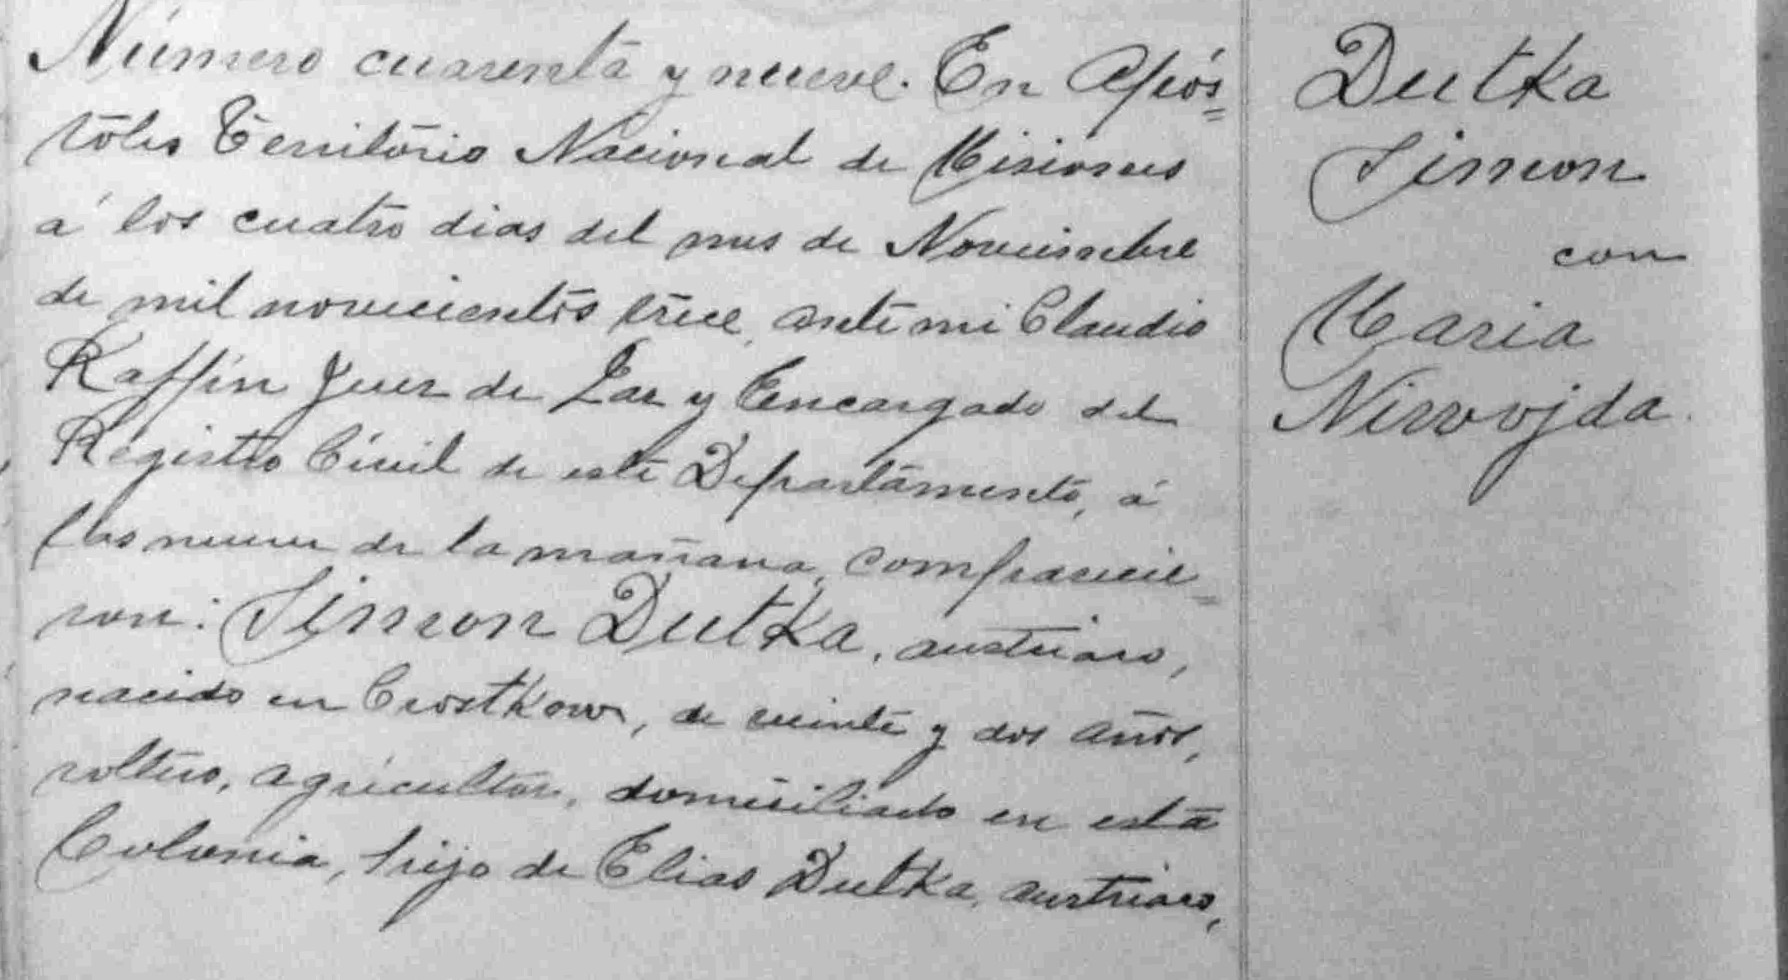 Número cuarenta y nueve. En Após=
toles Territorio Nacional de Misiones
á los cuatro dias del mes de Noviembre
de mil novecientos trece, ante mi Claudio
Raffin Juez de Paz y Encargado del
Registro Civil de este Departamento, á
las nueve de la mañana, comparecie=
ron: Simon Dutka, austriaco,
nacido en Crostkow, de veinte y dos años,
soltero, agricultor, domiciliado en esta
Colonia, hijo de Elias Dutka, austriaco,
Dutka
Simon
con
Maria
Niwojda